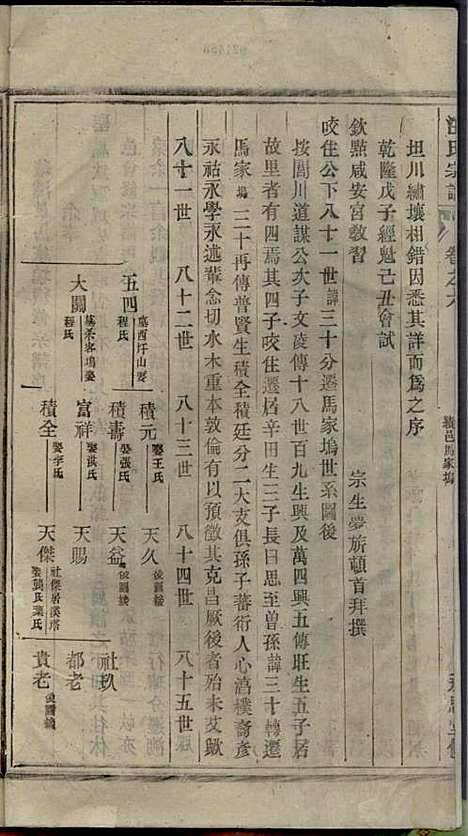 汪氏宗譜
卷之六
績邑馬家塢
坦川繡壤相錯因悉其詳而為之序
乾隆戊子經魁己丑會試
欽點咸安宮教習
宗生夢旂頓首拜撰
咬住公下八十一世諱三十分遷馬家塢世系圖後
按閭川道謀公次子文陵傳十八世百九生興及萬四興五傳旺生五子居
故里者有四焉其四子咬住遷居辛田生三子長日思至曾孫諱三十轉遷
馬家塢三十再傳普賢生積全積廷分二大支俱孫子蕃衍人心渾樸裔彥
永祜永學永述輩念切水木重本敦倫有以預徵其克昌厥後者殆未艾歟
八十一世
八十二世
八十三世
八十四世
八十五世
五四
墓酉圩山
娶程氏
積元
娶王氏
天久
後圖續
積壽
娶張氏
天益
後圖續
社玖
大關
墓茶客塢
娶程氏
富祥
娶洪氏
天賜
都老
積全
娶李氏
天傑
社傑居溪塔
娶張氏葉氏
貴老
後圖續